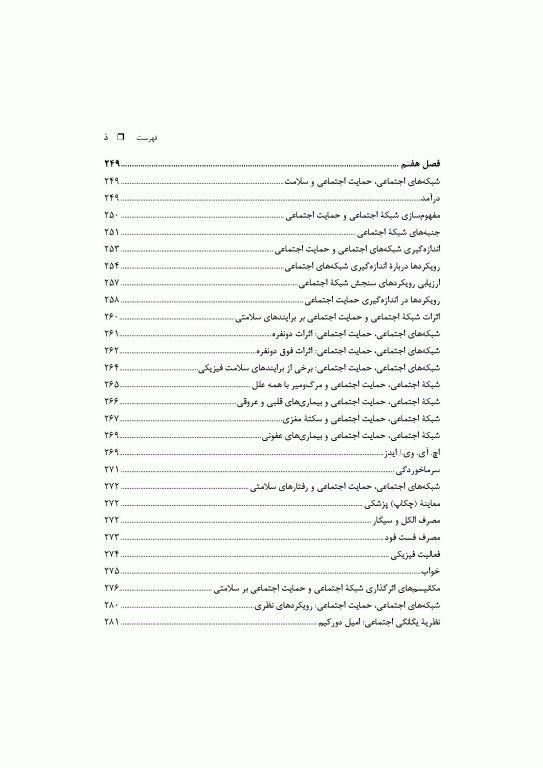 فهرست ❐ ذ
فصل هفتم ........ ۲۴۹
شبکه‌های اجتماعی، حمایت اجتماعی و سلامت ........ ۲۴۹
درآمد ........ ۲۴۹
مفهوم‌سازی شبکهٔ اجتماعی و حمایت اجتماعی ........ ۲۵۰
جنبه‌های شبکهٔ اجتماعی ........ ۲۵۱
اندازه‌گیری شبکه‌های اجتماعی و حمایت اجتماعی ........ ۲۵۳
رویکردها دربارهٔ اندازه‌گیری شبکه‌های اجتماعی ........ ۲۵۴
ارزیابی رویکردهای سنجش شبکهٔ اجتماعی ........ ۲۵۷
رویکردها در اندازه‌گیری حمایت اجتماعی ........ ۲۵۸
اثرات شبکهٔ اجتماعی و حمایت اجتماعی بر برایندهای سلامتی ........ ۲۶۰
شبکه‌های اجتماعی، حمایت اجتماعی: اثرات دونفره ........ ۲۶۱
شبکه‌های اجتماعی، حمایت اجتماعی: اثرات فوق دونفره ........ ۲۶۲
شبکه‌های اجتماعی، حمایت اجتماعی: برخی از برایندهای سلامت فیزیکی ........ ۲۶۴
شبکهٔ اجتماعی، حمایت اجتماعی و مرگ‌ومیر با همه علل ........ ۲۶۵
شبکهٔ اجتماعی، حمایت اجتماعی و بیماری‌های قلبی و عروقی ........ ۲۶۶
شبکهٔ اجتماعی، حمایت اجتماعی و سکتهٔ مغزی ........ ۲۶۷
شبکهٔ اجتماعی، حمایت اجتماعی و بیماری‌های عفونی ........ ۲۶۹
اچ. آی. وی./ ایدز ........ ۲۶۹
سرماخوردگی ........ ۲۷۱
شبکه‌های اجتماعی، حمایت اجتماعی و رفتارهای سلامتی ........ ۲۷۲
معاینهٔ (چکاپ) پزشکی ........ ۲۷۲
مصرف الکل و سیگار ........ ۲۷۲
مصرف فست فود ........ ۲۷۳
فعالیت فیزیکی ........ ۲۷۴
خواب ........ ۲۷۵
مکانیسم‌های اثرگذاری شبکهٔ اجتماعی و حمایت اجتماعی بر سلامتی ........ ۲۷۶
شبکه‌های اجتماعی، حمایت اجتماعی: رویکردهای نظری ........ ۲۸۰
نظریهٔ یگانگی اجتماعی: امیل دورکیم ........ ۲۸۱